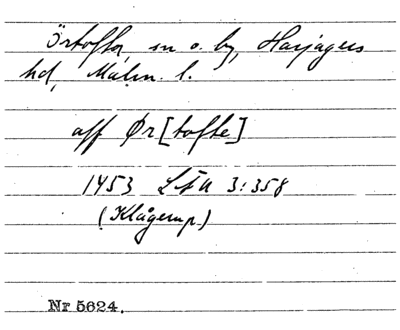 Örtofta sn o. by, Harjagers
hd, Malm. l.
aff Ør[tofte]
1453 LÄU 3:358
(Klågerup)
Nr 5624.